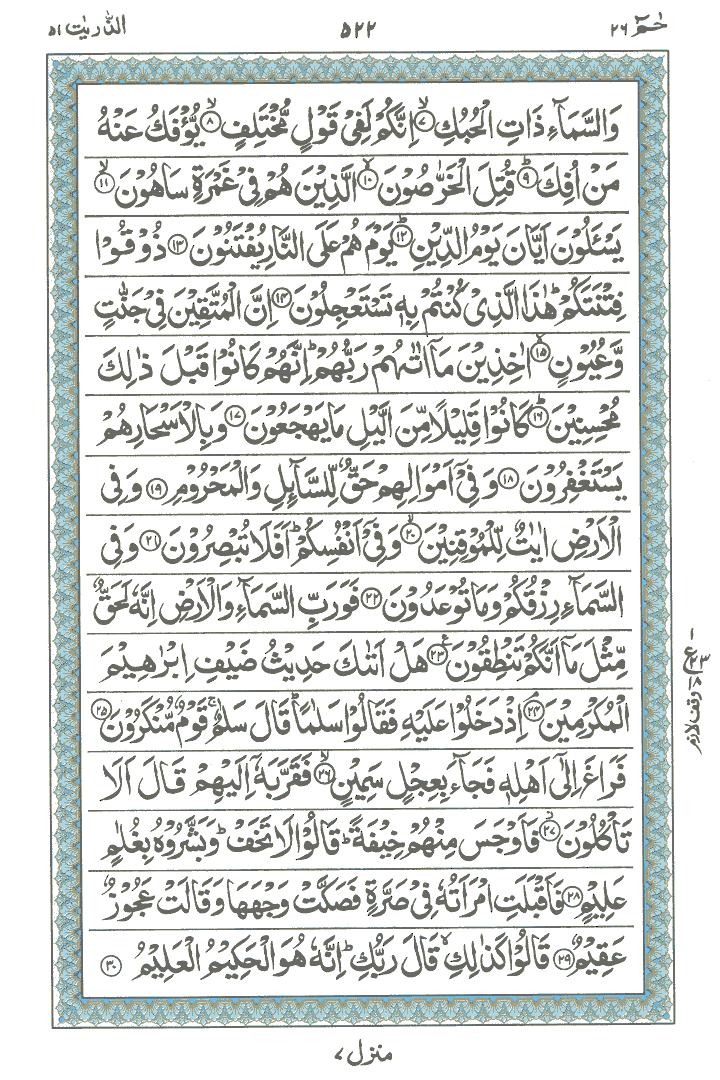 حٰمٓ ٢٦ ٥٢٢ الذّٰريٰت ٥١
وَالسَّمَآءِ ذَاتِ الْحُبُكِ ۙ﴿۷﴾ اِنَّكُمْ لَفِیْ قَوْلٍ مُّخْتَلِفٍ ۙ﴿۸﴾ یُّؤْفَكُ عَنْهُ
مَنْ اُفِكَ ؕ﴿۹﴾ قُتِلَ الْخَرّٰصُوْنَ ۙ﴿۱۰﴾ الَّذِیْنَ هُمْ فِیْ غَمْرَةٍ سَاهُوْنَ ۙ﴿۱۱﴾
یَسْـَٔلُوْنَ اَیَّانَ یَوْمُ الدِّیْنِ ؕ﴿۱۲﴾ یَوْمَ هُمْ عَلَی النَّارِ یُفْتَنُوْنَ ﴿۱۳﴾ ذُوْقُوْا
فِتْنَتَكُمْ ؕ هٰذَا الَّذِیْ كُنْتُمْ بِهٖ تَسْتَعْجِلُوْنَ ﴿۱۴﴾ اِنَّ الْمُتَّقِیْنَ فِیْ جَنّٰتٍ
وَّعُیُوْنٍ ۙ﴿۱۵﴾ اٰخِذِیْنَ مَاۤ اٰتٰىهُمْ رَبُّهُمْ ؕ اِنَّهُمْ كَانُوْا قَبْلَ ذٰلِكَ
مُحْسِنِیْنَ ؕ﴿۱۶﴾ كَانُوْا قَلِیْلًا مِّنَ الَّیْلِ مَا یَهْجَعُوْنَ ﴿۱۷﴾ وَبِالْاَسْحَارِ هُمْ
یَسْتَغْفِرُوْنَ ﴿۱۸﴾ وَفِیْۤ اَمْوَالِهِمْ حَقٌّ لِّلسَّآىِٕلِ وَالْمَحْرُوْمِ ﴿۱۹﴾ وَفِی
الْاَرْضِ اٰیٰتٌ لِّلْمُوْقِنِیْنَ ۙ﴿۲۰﴾ وَفِیْۤ اَنْفُسِكُمْ ؕ اَفَلَا تُبْصِرُوْنَ ﴿۲۱﴾ وَفِی
السَّمَآءِ رِزْقُكُمْ وَمَا تُوْعَدُوْنَ ﴿۲۲﴾ فَوَرَبِّ السَّمَآءِ وَالْاَرْضِ اِنَّهٗ لَحَقٌّ
مِّثْلَ مَاۤ اَنَّكُمْ تَنْطِقُوْنَ ﴿۲۳﴾ هَلْ اَتٰىكَ حَدِیْثُ ضَیْفِ اِبْرٰهِیْمَ
الْمُكْرَمِیْنَ ۘ﴿۲۴﴾ اِذْ دَخَلُوْا عَلَیْهِ فَقَالُوْا سَلٰمًا ؕ قَالَ سَلٰمٌ ۚ قَوْمٌ مُّنْكَرُوْنَ ۚ﴿۲۵﴾
فَرَاغَ اِلٰۤی اَهْلِهٖ فَجَآءَ بِعِجْلٍ سَمِیْنٍ ۙ﴿۲۶﴾ فَقَرَّبَهٗۤ اِلَیْهِمْ قَالَ اَلَا
تَاْكُلُوْنَ ۫﴿۲۷﴾ فَاَوْجَسَ مِنْهُمْ خِیْفَةً ؕ قَالُوْا لَا تَخَفْ ؕ وَبَشَّرُوْهُ بِغُلٰمٍ
عَلِیْمٍ ﴿۲۸﴾ فَاَقْبَلَتِ امْرَاَتُهٗ فِیْ صَرَّةٍ فَصَكَّتْ وَجْهَهَا وَقَالَتْ عَجُوْزٌ
عَقِیْمٌ ﴿۲۹﴾ قَالُوْا كَذٰلِكِ ۙ قَالَ رَبُّكِ ؕ اِنَّهٗ هُوَ الْحَكِیْمُ الْعَلِیْمُ ﴿۳۰﴾
١ ع ٢٣ ١٨
وقف لازم
منزل ٧